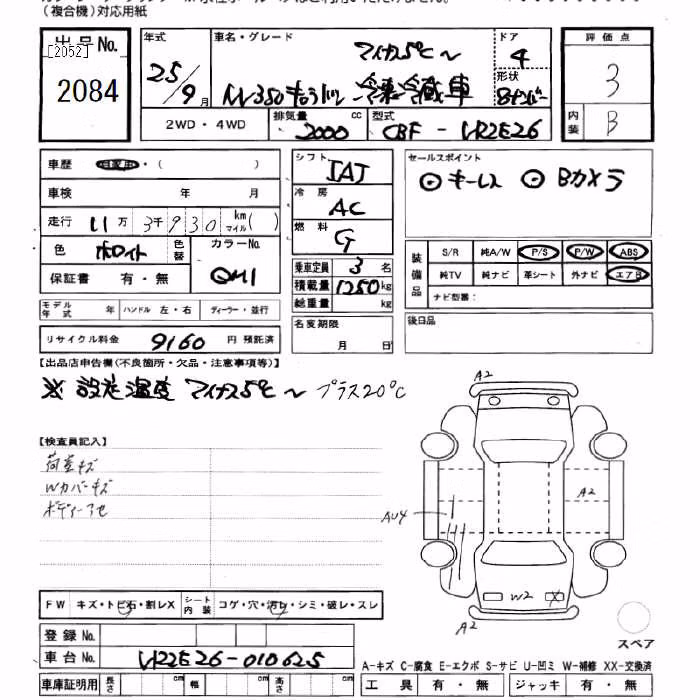 （複合機）対応用紙
出品No. [2052] 2084
年式 25/9月
車名・グレード マイナス5℃〜
NV350キャラバン 冷凍冷蔵車
ドア 4
形状 8ナンバー
評価点 3
内装 B
2WD・4WD 排気量 2000 cc 型式 CBF-VR2E26
車歴 自家用・（ ）
車検 年 月
走行 11万3千930 km マイル( )
色 ホワイト 色替 カラーNo. QM1
保証書 有・無
モデル年式 年 ハンドル 左・右 ディーラー・並行
リサイクル料金 9160 円 預託済
シフト IAT
冷房 AC
燃料 G
乗車定員 3名
積載量 1250kg
総重量 kg
名変期限 月 日
セールスポイント
キーレス Bカメラ
装備品 S/R 純A/W P/S P/W ABS
純TV 純ナビ 革シート 外ナビ エアB
ナビ型番：
後日品
【出品店申告欄(不良箇所・欠品・注意事項等)】
※ 設定温度 マイナス5℃〜プラス20℃
【検査員記入】
荷室キズ
Wカバーキズ
ボディーアセ
A2
A2
AU4
W2 X
A2
FW キズ・トビ石・割レX シート内装 コゲ・穴・汚レ・シミ・破レ・スレ
登録No.
車台No. VR2E26-010625
車庫証明用 長さ cm 幅 cm 高さ cm
スペア
A-キズ C-腐食 E-エクボ S-サビ U-凹ミ W-補修 XX-交換済
工具 有・無 ジャッキ 有・無